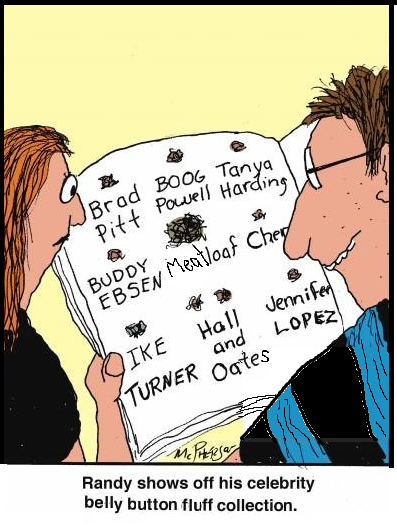 Brad Pitt
BOOG Powell
Tanya Harding
BUDDY EBSEN
Meatloaf
Cher
IKE TURNER
Hall and Oates
Jennifer LOPEZ
Randy shows off his celebrity
belly button fluff collection.